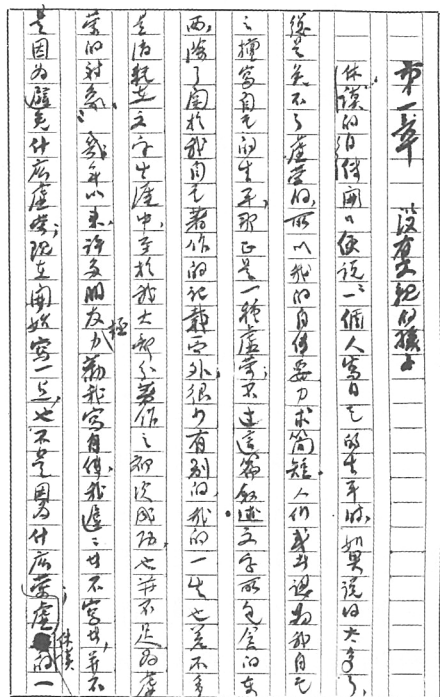 第一章 没有父親的孩子
休謨的自傳開口便說：“一個人寫自己的生平時，如果說的太多了，
總是免不了虛榮的，所以我的自傳要力求簡短。人們或者認為我自己
之擅寫自己的生平，那正是一種虛榮；不过這篇叙述文字所包含的東
西，除了關於我自己著作的記載而外，很少有别的，我的一生也差不多
是消耗在文字生涯中。至於我大部分著作之初次成功，也并不足為虛
荣的对象”。幾年以來許多朋友極力勸我寫自傳，我遲遲廿不寫廿，并不
是因为避免什広虛荣；現在開始寫一点，也不是因为什広荣虛；休謨的一